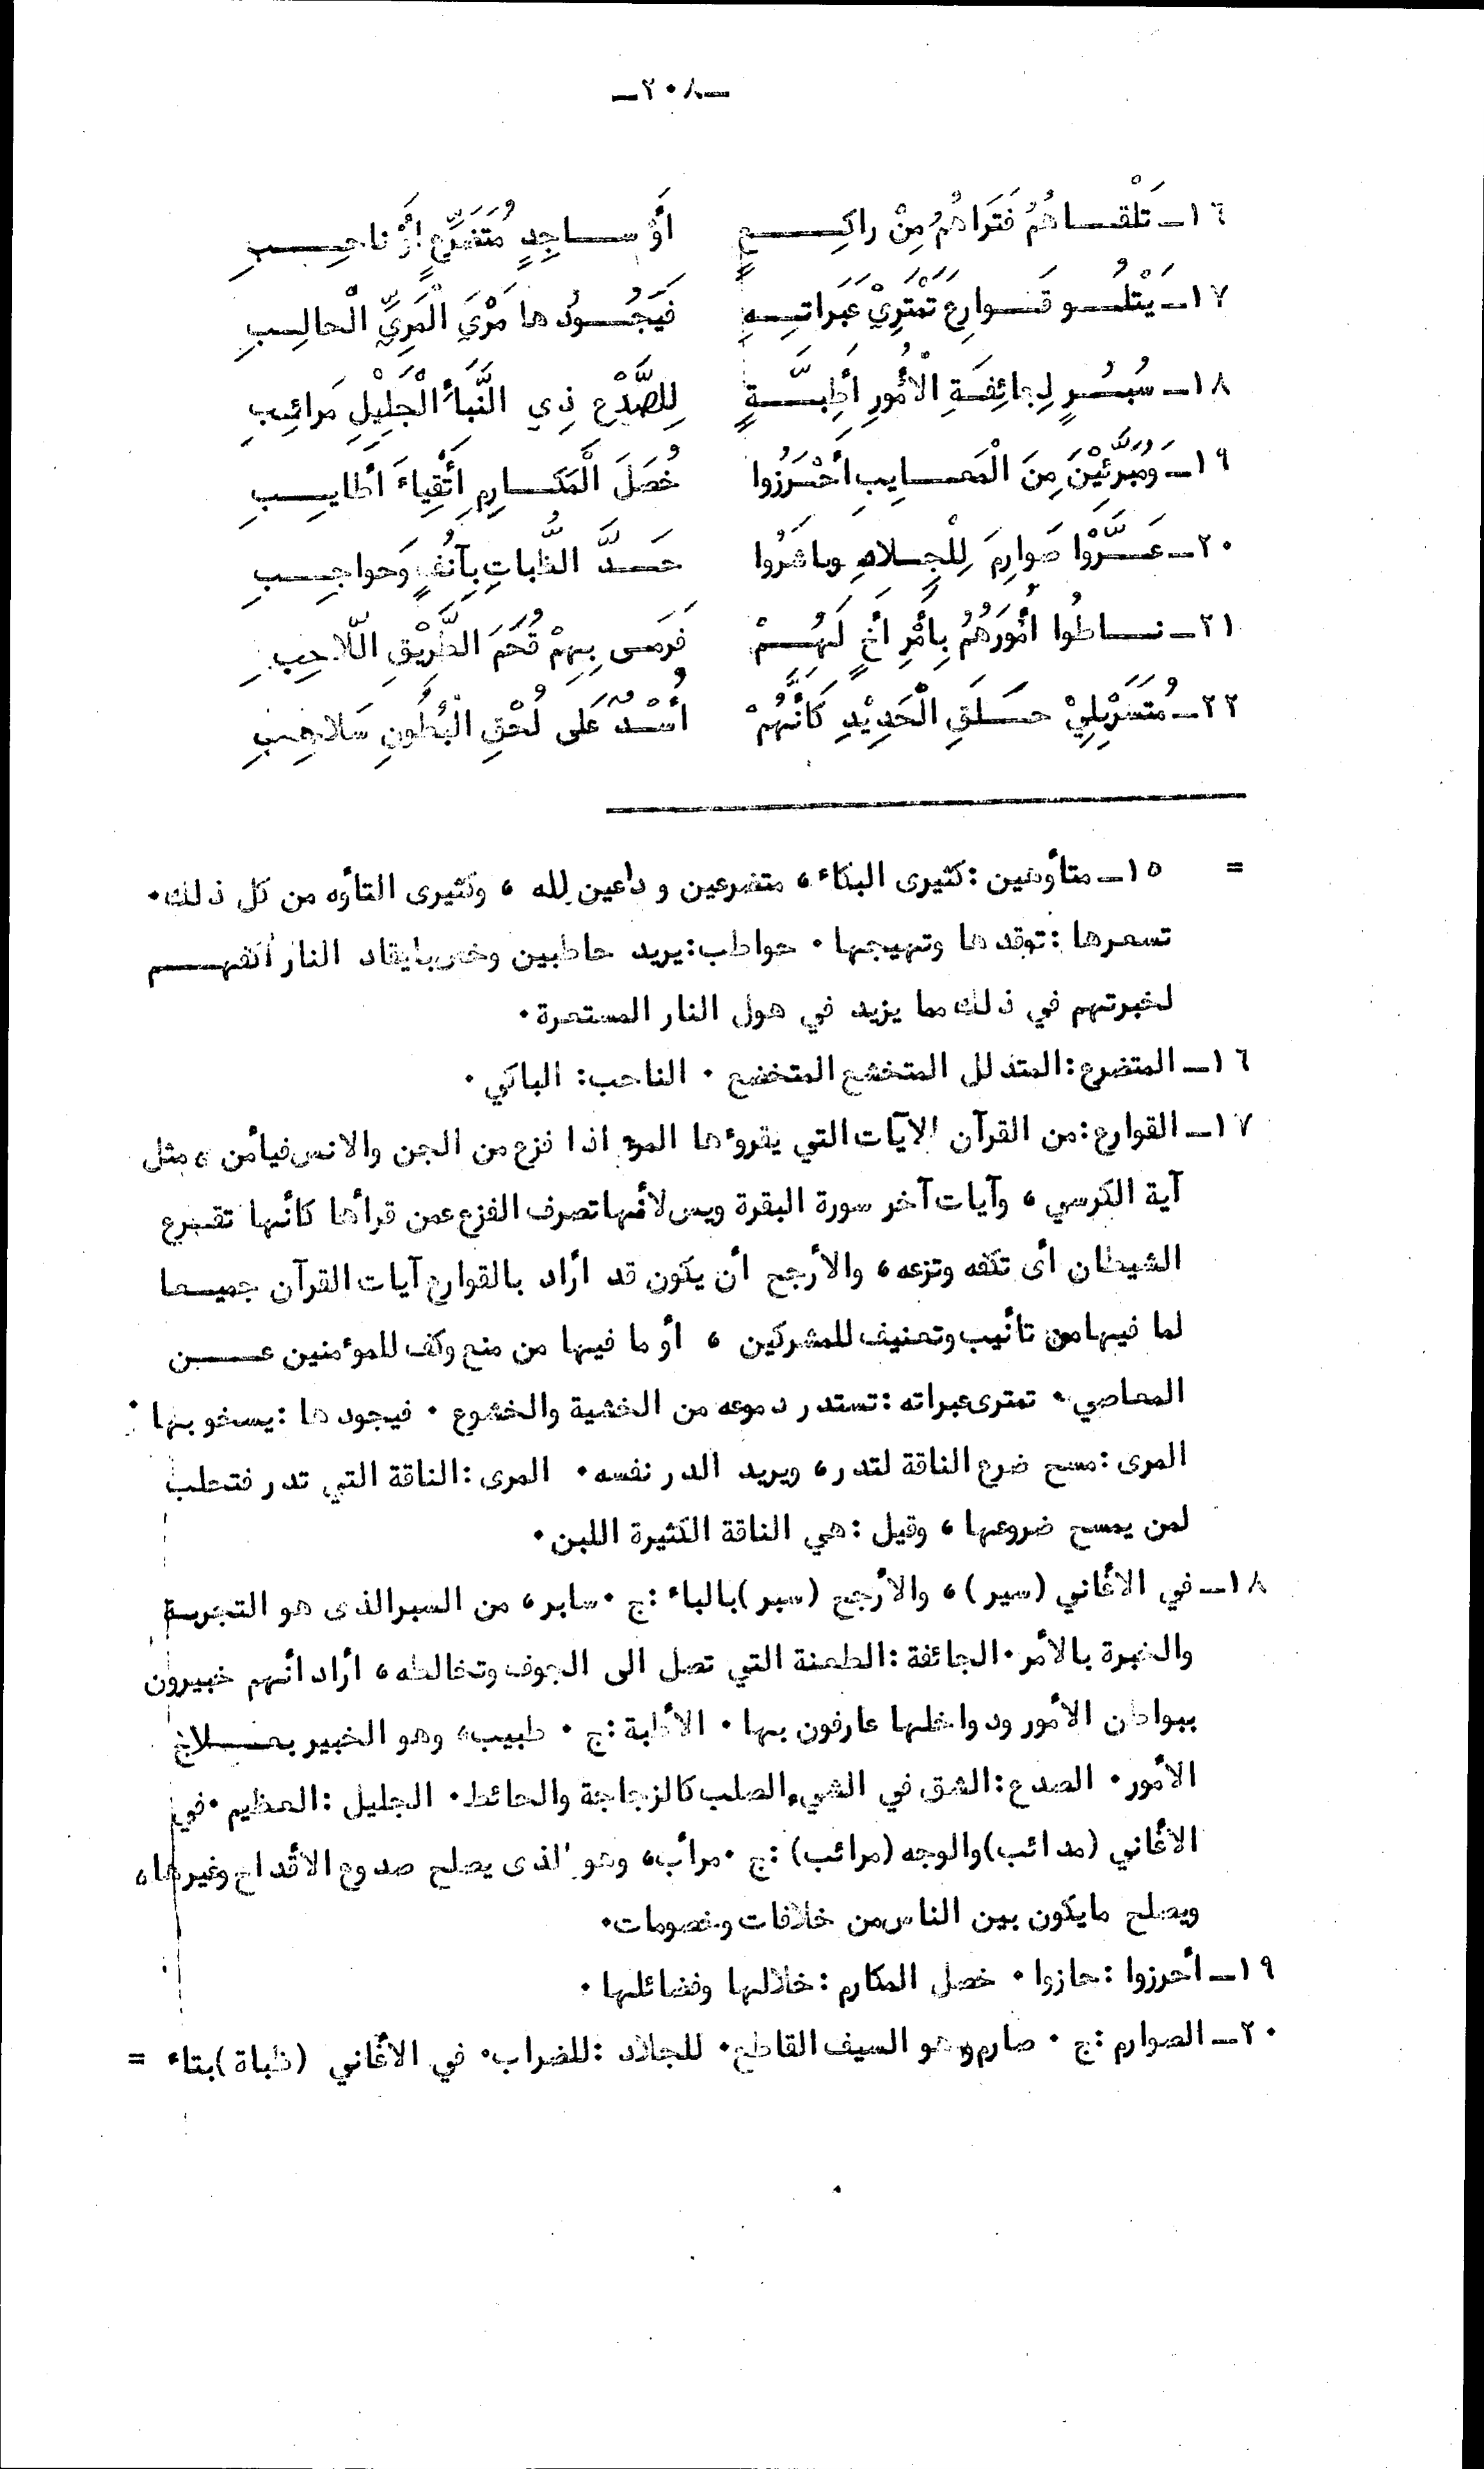 ـ٢٠٨ـ
١٦ـ تَلْقـاهُمُ فَتَرَاهُمُ مِنْ راكِـعٍ أَوْ سـاجِدٍ مُتَضَرِّعٍ أَوْ ناحِـبِ
١٧ـ يَتْلُـو قَـوارِعَ تَمْتَرِيْ عَبَرَاتِـهِ فَيَجُـودُ ها مَرْيَ الْمَرِيِّ الْحالِـبِ
١٨ـ سُبُـرٍ لِجائِفَـةِ الْأُمُورِ أَطِبَّـةٍ لِلصَّدْعِ ذِي النَّبَأِ الْجَلِيْلِ مَرائِبِ
١٩ـ وَمُبَرَّئِيْنَ مِنَ الْمَعـايِبِ أَحْرَزُوا خُصَلَ الْمَكـارِمِ أَتْقِيَاءَ أَطايِـبِ
٢٠ـ عَـرَّوْا صَوارِمَ لِلْجِـلادِ وباشَرُوا حَـدَّ الظُّباتِ بِآنُفٍ وَحواجِـبِ
٢١ـ نـاطُوا أُمُورَهُمُ بِأَمْرِ أَخٍ لَهُـمْ فَرَمَى بِهِمْ قُحَمَ الطَّرِيْقِ اللّاحِبِ
٢٢ـ مُتَسَرْبِلِيْ حَـلَقِ الْحَدِيْدِ كَأَنَّهُمْ أُسْدٌ عَلَى لُحْقِ الْبُطُونِ سَلاهِبِ
= ١٥ـ متأوهين : كثيرى البكاء ، متضرعين و داعين لله ، وكثيرى التأوه من كل ذلك٠
تسعرها : توقدها وتهيجها ٠ حواطب: يريد حاطبين وخص بايقاد النار أكفهـم
لخبرتهم في ذلك مما يزيد في هول النار المستعرة ٠
١٦ـ المتضرع : المتذلل المتخشع المتخضع ٠ الناحب: الباكي ٠
١٧ـ القوارع : من القرآن الآيات التي يقروءها المرء اذا فزع من الجن والانس فيأمن ، مثل
آية الكرسي ، وآيات آخر سورة البقرة ويس لأنها تصرف الفزع عمن قرأها كأنها تقـرع
الشيطان أى تكفه وتزعه ، والأرجح أن يكون قد أراد بالقوارع آيات القرآن جميـعا
لما فيها من تأنيب وتعنيف للمشركين ، أو ما فيها من منع وكف للموءمنين عـن
المعاصي ٠ تمترى عبراته : تستدر دموعه من الخشية والخشوع ٠ فيجودها : يسخو بها ٠
المرى : مسح ضرع الناقة لتدر ، ويريد الدر نفسه ٠ المرى : الناقة التي تدر فتحلب
لمن يمسح ضروعها ، وقيل : هي الناقة الكثيرة اللبن ٠
١٨ـ في الأغاني (سير) ، والأرجح (سبر) بالباء : ج ٠ سابر ، من السبر الذى هو التجربـة
والخبرة بالأمر ٠ الجائفة : الطعنة التي تصل الى الجوف وتخالطه ، أراد أنهم خبيرون
ببواطن الأمور ودواخلها عارفون بها ٠ الأطبة : ج ٠ طبيب ، وهو الخبير بعـلاج
الأمور ٠ الصدع : الشق في الشيء الصلب كالزجاجة والحائط ٠ الجليل : العظيم ٠ في
الأغاني (مدائب) والوجه (مرائب) : ج ٠ مرأب ، وهو الذى يصلح صدوع الأقداح وغيرها ،
ويصلح مايكون بين الناس من خلافات وخصومات٠
١٩ـ أحرزوا : حازوا ٠ خصل المكارم : خلالها وفضائلها ٠
٢٠ـ الصوارم : ج ٠ صارم وهو السيف القاطع ٠ للجلاد : للضراب ٠ في الأغاني (ظباة) بتاء =